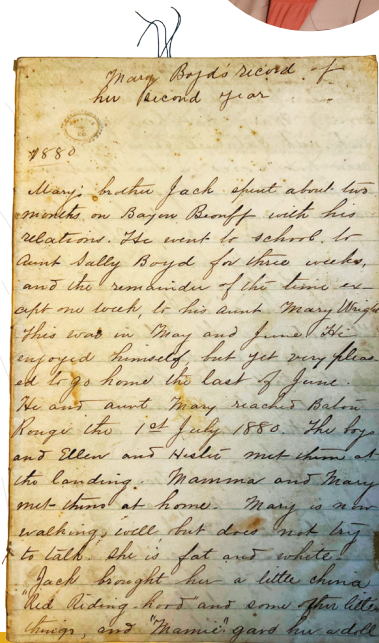 Mary Boyd's record of
her second year
1880
Mary's brother Jack spent about two
months on Bayou Beouff with his
relations. He went to school to
Aunt Sally Boyd for three weeks,
and the remainder of the time ex-
cept one week, to his aunt Mary Wright
This was in May and June. He
enjoyed himself but yet very pleas
ed to go home the last of June.
He and aunt Mary reached Baton
Rouge the 1st July 1880. The boys
and Ellen and Hester met them at
the landing. Mamma and Mary
met them at home. Mary is now
walking well but does not try
to talk. She is fat and white.
Jack brought her a little china
"Red Riding-hood" and some other little
things, and "Mamie" gave her a doll